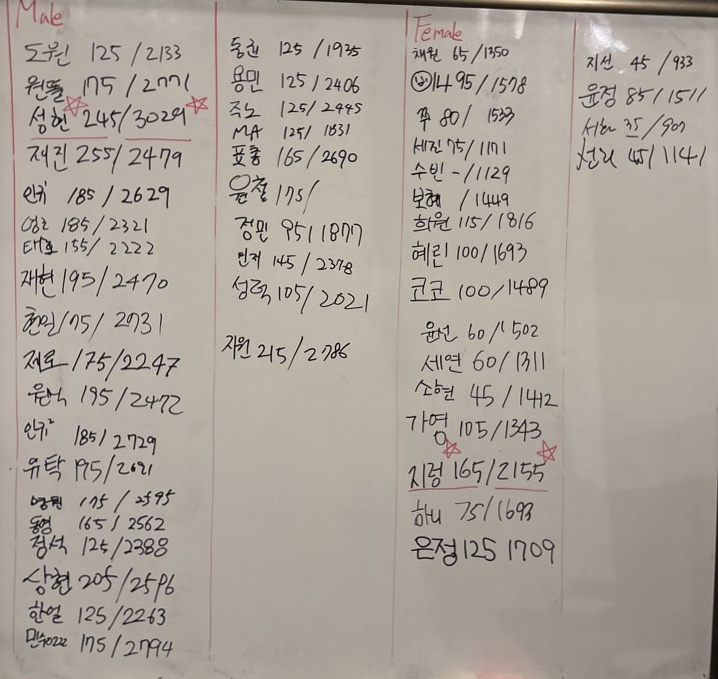 Male
도원 125/2133
원똘 175/2771
성헌 245/3029
재진 255/2479
인규¹ 185/2629
영근 185/2321
태호 155/2222
재현 195/2470
환일 175/2731
제로 175/2247
윤석 195/2472
인규² 185/2729
유탁 195/2621
175/2595
동영 165/2562
정석 125/2388
상현 205/2596
한얼 125/2263
민수0222 175/2794
동권 125/1935
용민 125/2406
주노 125/2445
MA 125/1831
표충 165/2690
윤철 175/
정민 95/1877
민지 145/2378
성력 105/2021
지원 215/2786
Female
채원 65/1350
95/1578
쭈 80/1533
세진 75/1171
수빈 -/1129
보혜 /1449
희원 115/1816
혜린 100/1693
코코 100/1489
윤선 60/1502
세연 60/1311
소현 45/1412
가영 105/1343
지렁 165/2155
하니 75/1693
은정 125 1709
지선 45/933
윤정 85/1511
35/907
45/1141